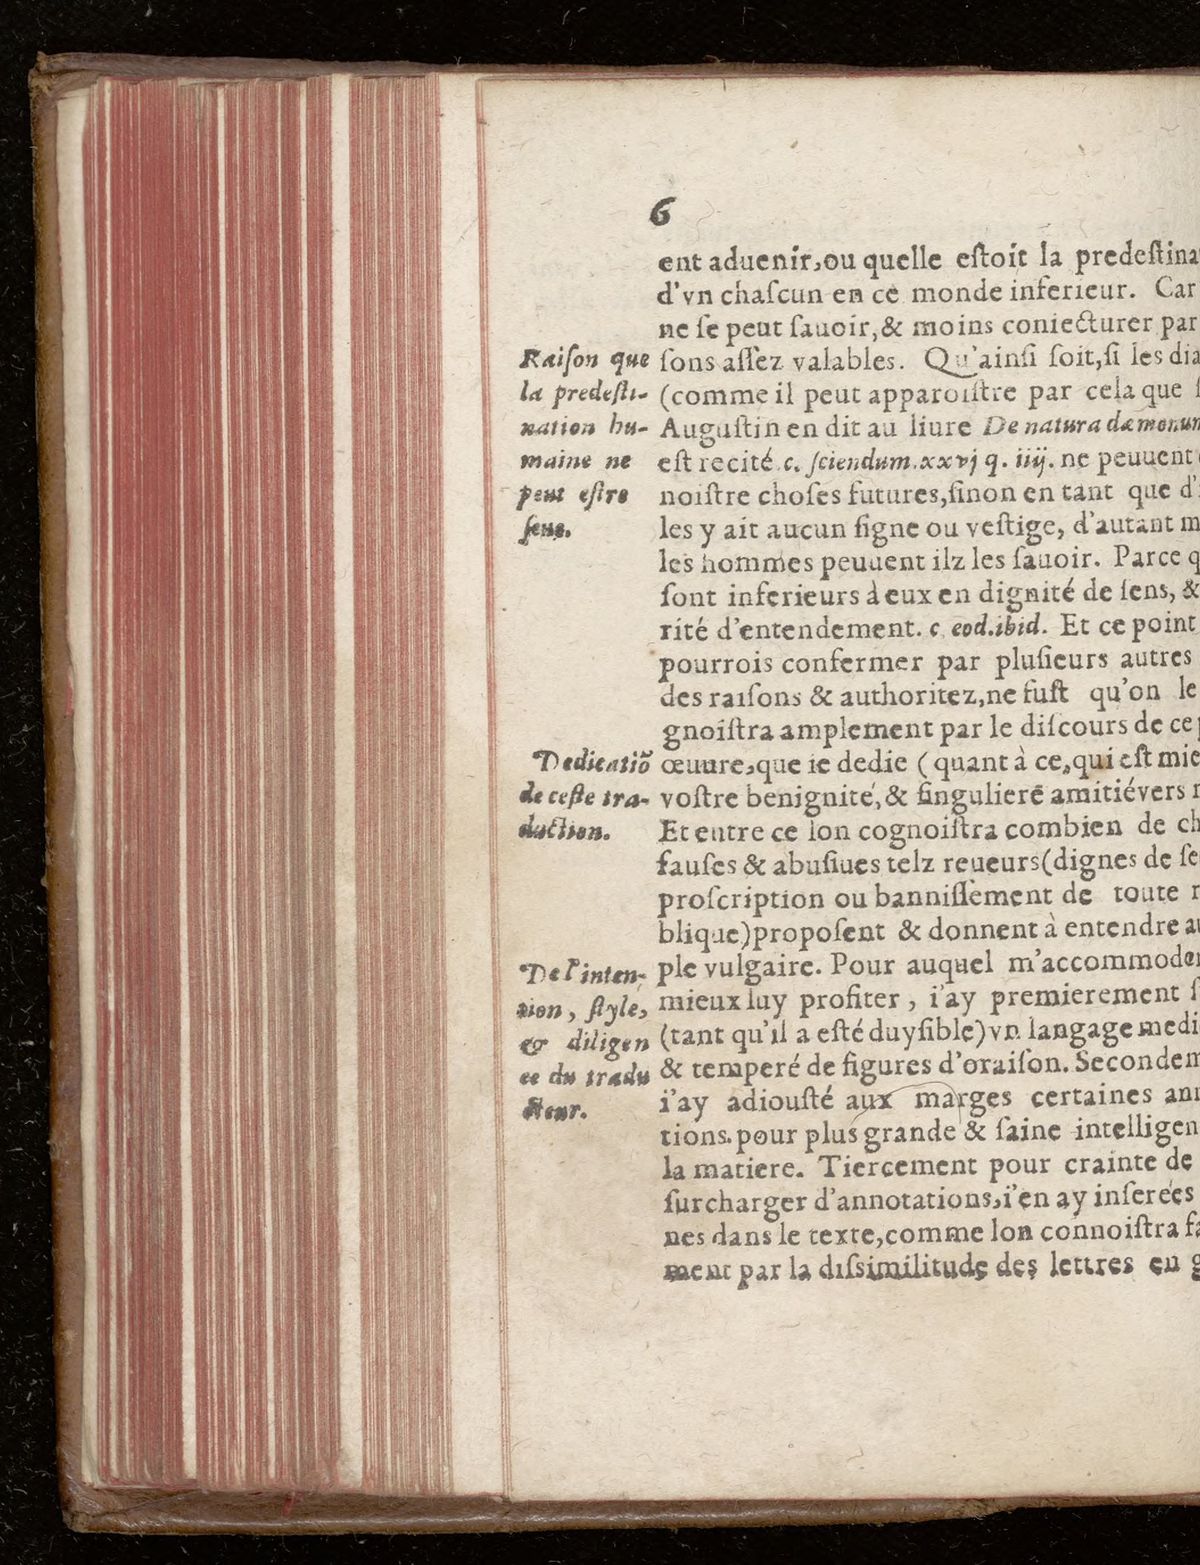 6
ent aduenir,ou quelle eſtoit la predeſtina
d'vn chaſcun en ce monde inferieur. Car
ne ſe peut ſauoir,& moins coniecturer par
ſons aſſez valables. Qu'ainſi ſoit,ſi les dia
(comme il peut apparoiſtre par cela que ſ
Auguſtin en dit au liure De natura dæmonum
eſt recité c. ſciendum.xxvj q. iiij. ne peuuent
noiſtre choſes futures,ſinon en tant que d'
les y ait aucun ſigne ou veſtige, d'autant m
les hommes peuuent ilz les ſauoir. Parce q
ſont inferieurs à eux en dignité de ſens, &
rité d'entendement. c. eod.ibid. Et ce point
pourrois confermer par pluſieurs autres
des raiſons & authoritez,ne fuſt qu'on le
gnoiſtra amplement par le diſcours de ce p
œuure,que ie dedie (quant à ce,qui eſt mie
voſtre benignité,& ſingulierē amitié vers n
Et entre ce lon cognoiſtra combien de ch
fauſes & abuſiues telz reueurs(dignes de ſe
proſcription ou banniſſement de toute r
blique)propoſent & donnent à entendre au
ple vulgaire. Pour auquel m'accommoder
mieux luy profiter, i'ay premierement ſ
(tant qu'il a eſté duyſible)vn langage medi
& temperé de figures d'oraiſon. Secondem
i'ay adiouſté aux marges certaines ann
tions.pour plus grande & ſaine intelligen
la matiere. Tiercement pour crainte de
ſurcharger d'annotations,i'en ay inſerées
nes dans le texte,comme lon connoiſtra fa
ment par la diſsimilitude des lettres en g
Raiſon que
la predeſti-
nation hu-
maine ne
peut eſtre
ſeue.
Dedicatiõ
de ceſte tra-
duction.
De l'inten-
tion, ſtyle,
& diligen
ce du tradu
cteur.